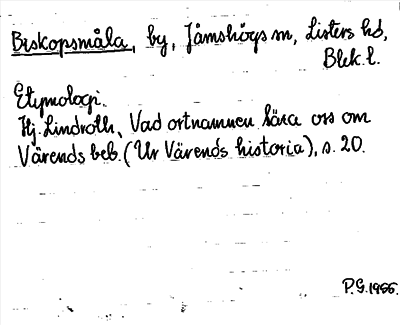 Biskopsmåla, by, Jämshögs sn, Listers hd,
Blek. l.
Etymologi.
Hj. Lindroth, Vad ortnamnen lära oss om
Värends beb. (Ur Värends historia), s. 20.
P.G. 1955.